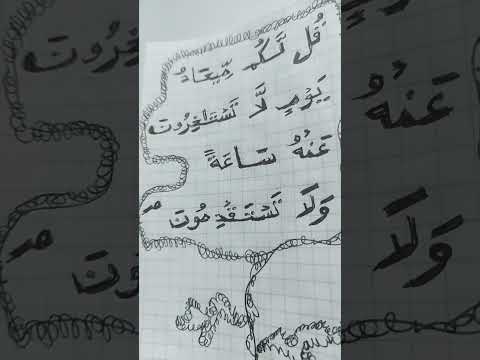 قُل لَّكُم مِّيعَادُ
يَوْمٍ لَّا تَسْتَـْٔخِرُونَ
عَنْهُ سَاعَةً
وَلَا تَسْتَقْدِمُونَ